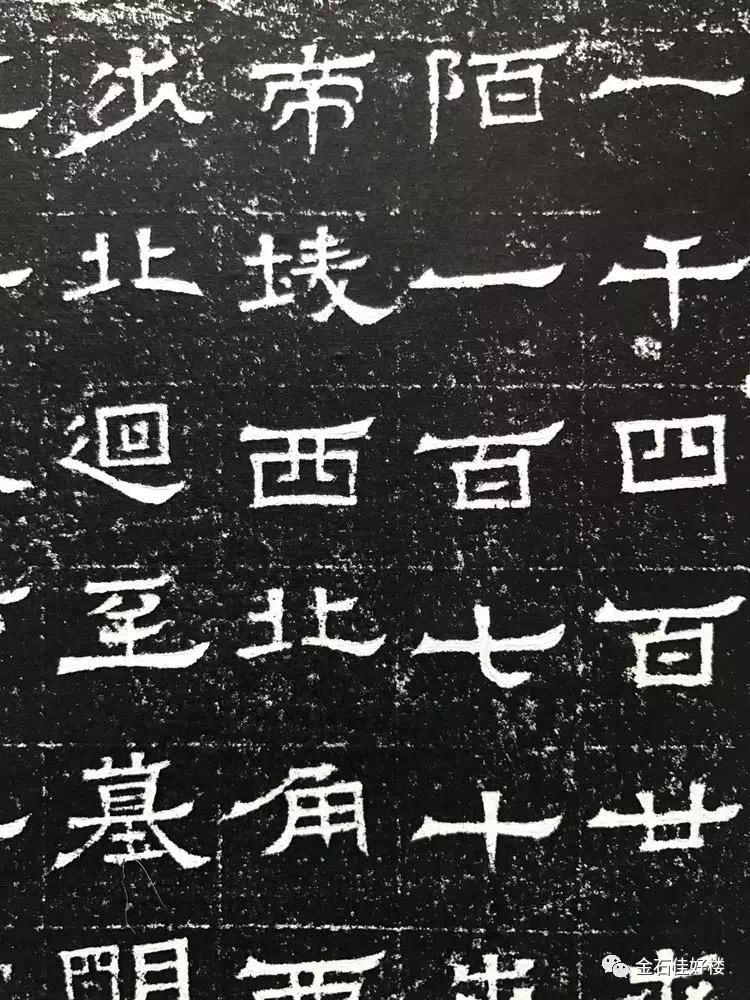 一千四百廿
陌一百七十
帝堎西北角西
步北迴至墓
金石佳好楼